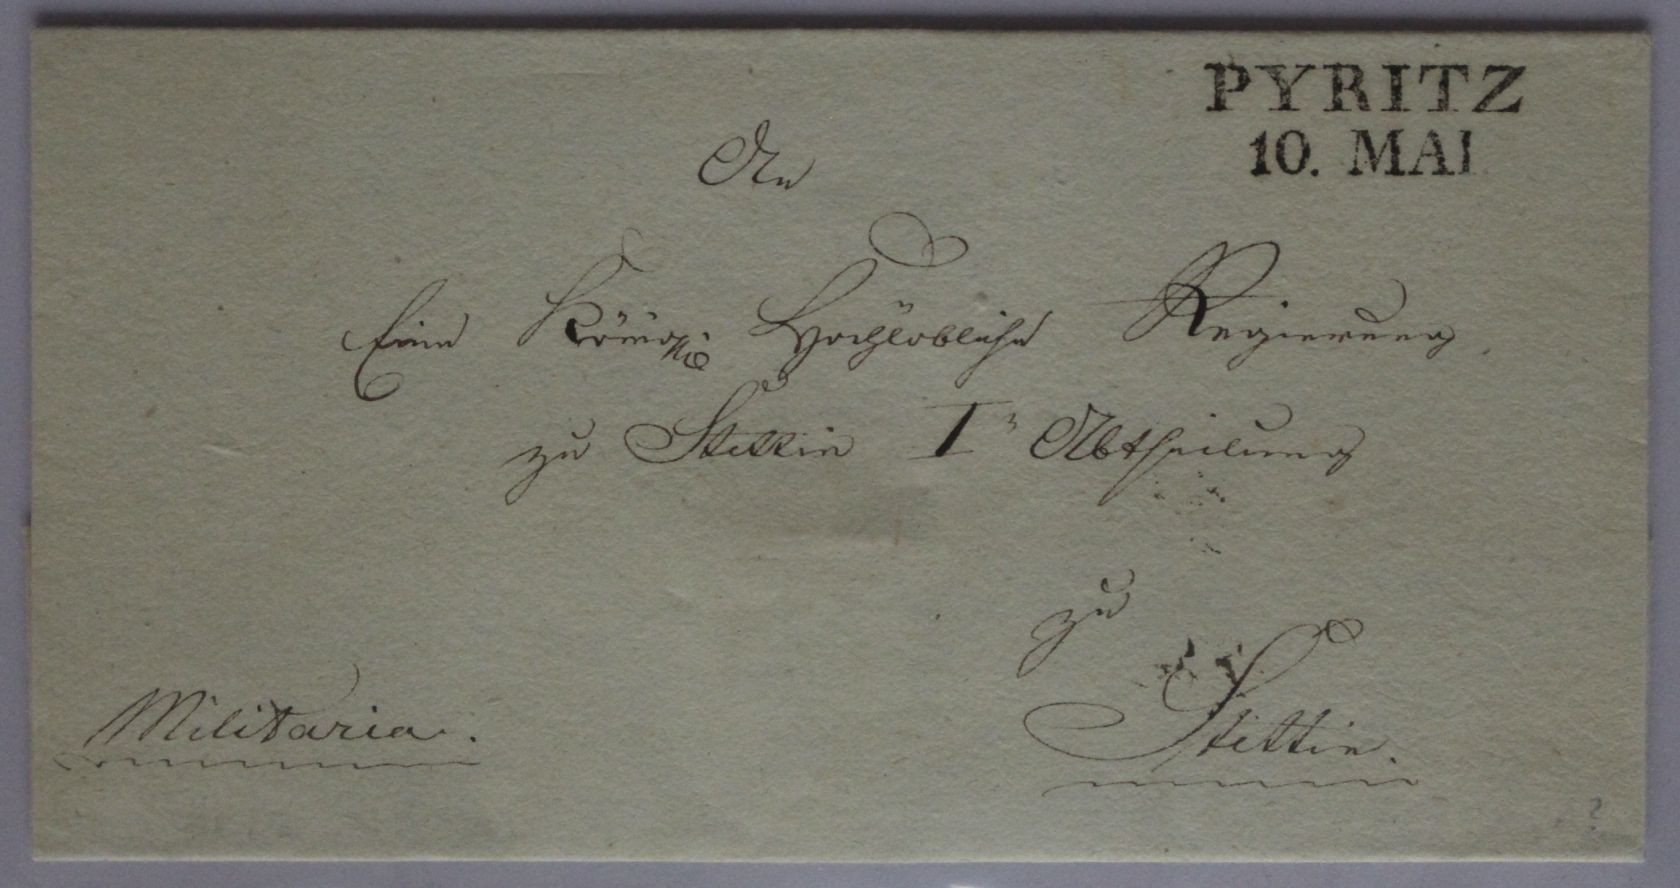 PYRITZ
10. MAI
An
Eine Königl. Hochlöbliche Regierung
zu Stettin I. Abtheilung
zu
Stettin.
Militaria.